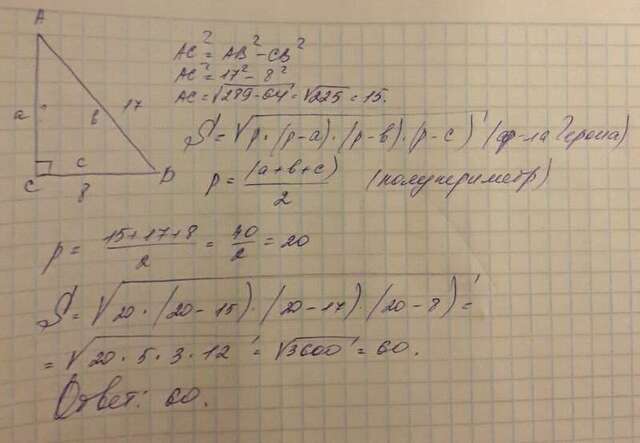 A
a
в
17
c
C
8
D
AC² = AB² - CB²
AC² = 17² - 8²
AC = √289-64 = √225 = 15.
S = √p·(p-a)·(p-в)·(p-c) (ф-ла Герона)
p = (a+в+c)/2 (полупериметр)
p = 15+17+8/2 = 40/2 = 20
S = √20·(20-15)·(20-17)·(20-8) =
= √20·5·3·12 = √3600 = 60.
Ответ: 60.